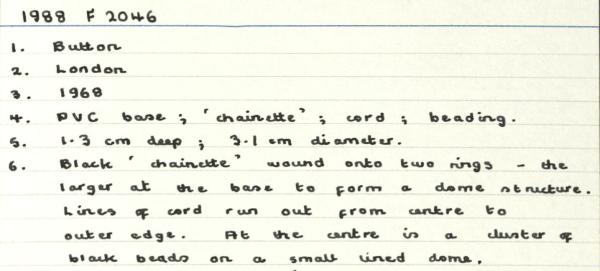 1988 F 2046
1. Button
2. London
3. 1968
4. PVC base ; 'chainette' ; cord ; beading.
5. 1.3 cm deep ; 3.1 cm diameter.
6. Black 'chainette' wound onto two rings - the
larger at the base to form a dome structure.
Lines of cord run out from centre to
outer edge. At the centre is a cluster of
black beads on a small lined dome.